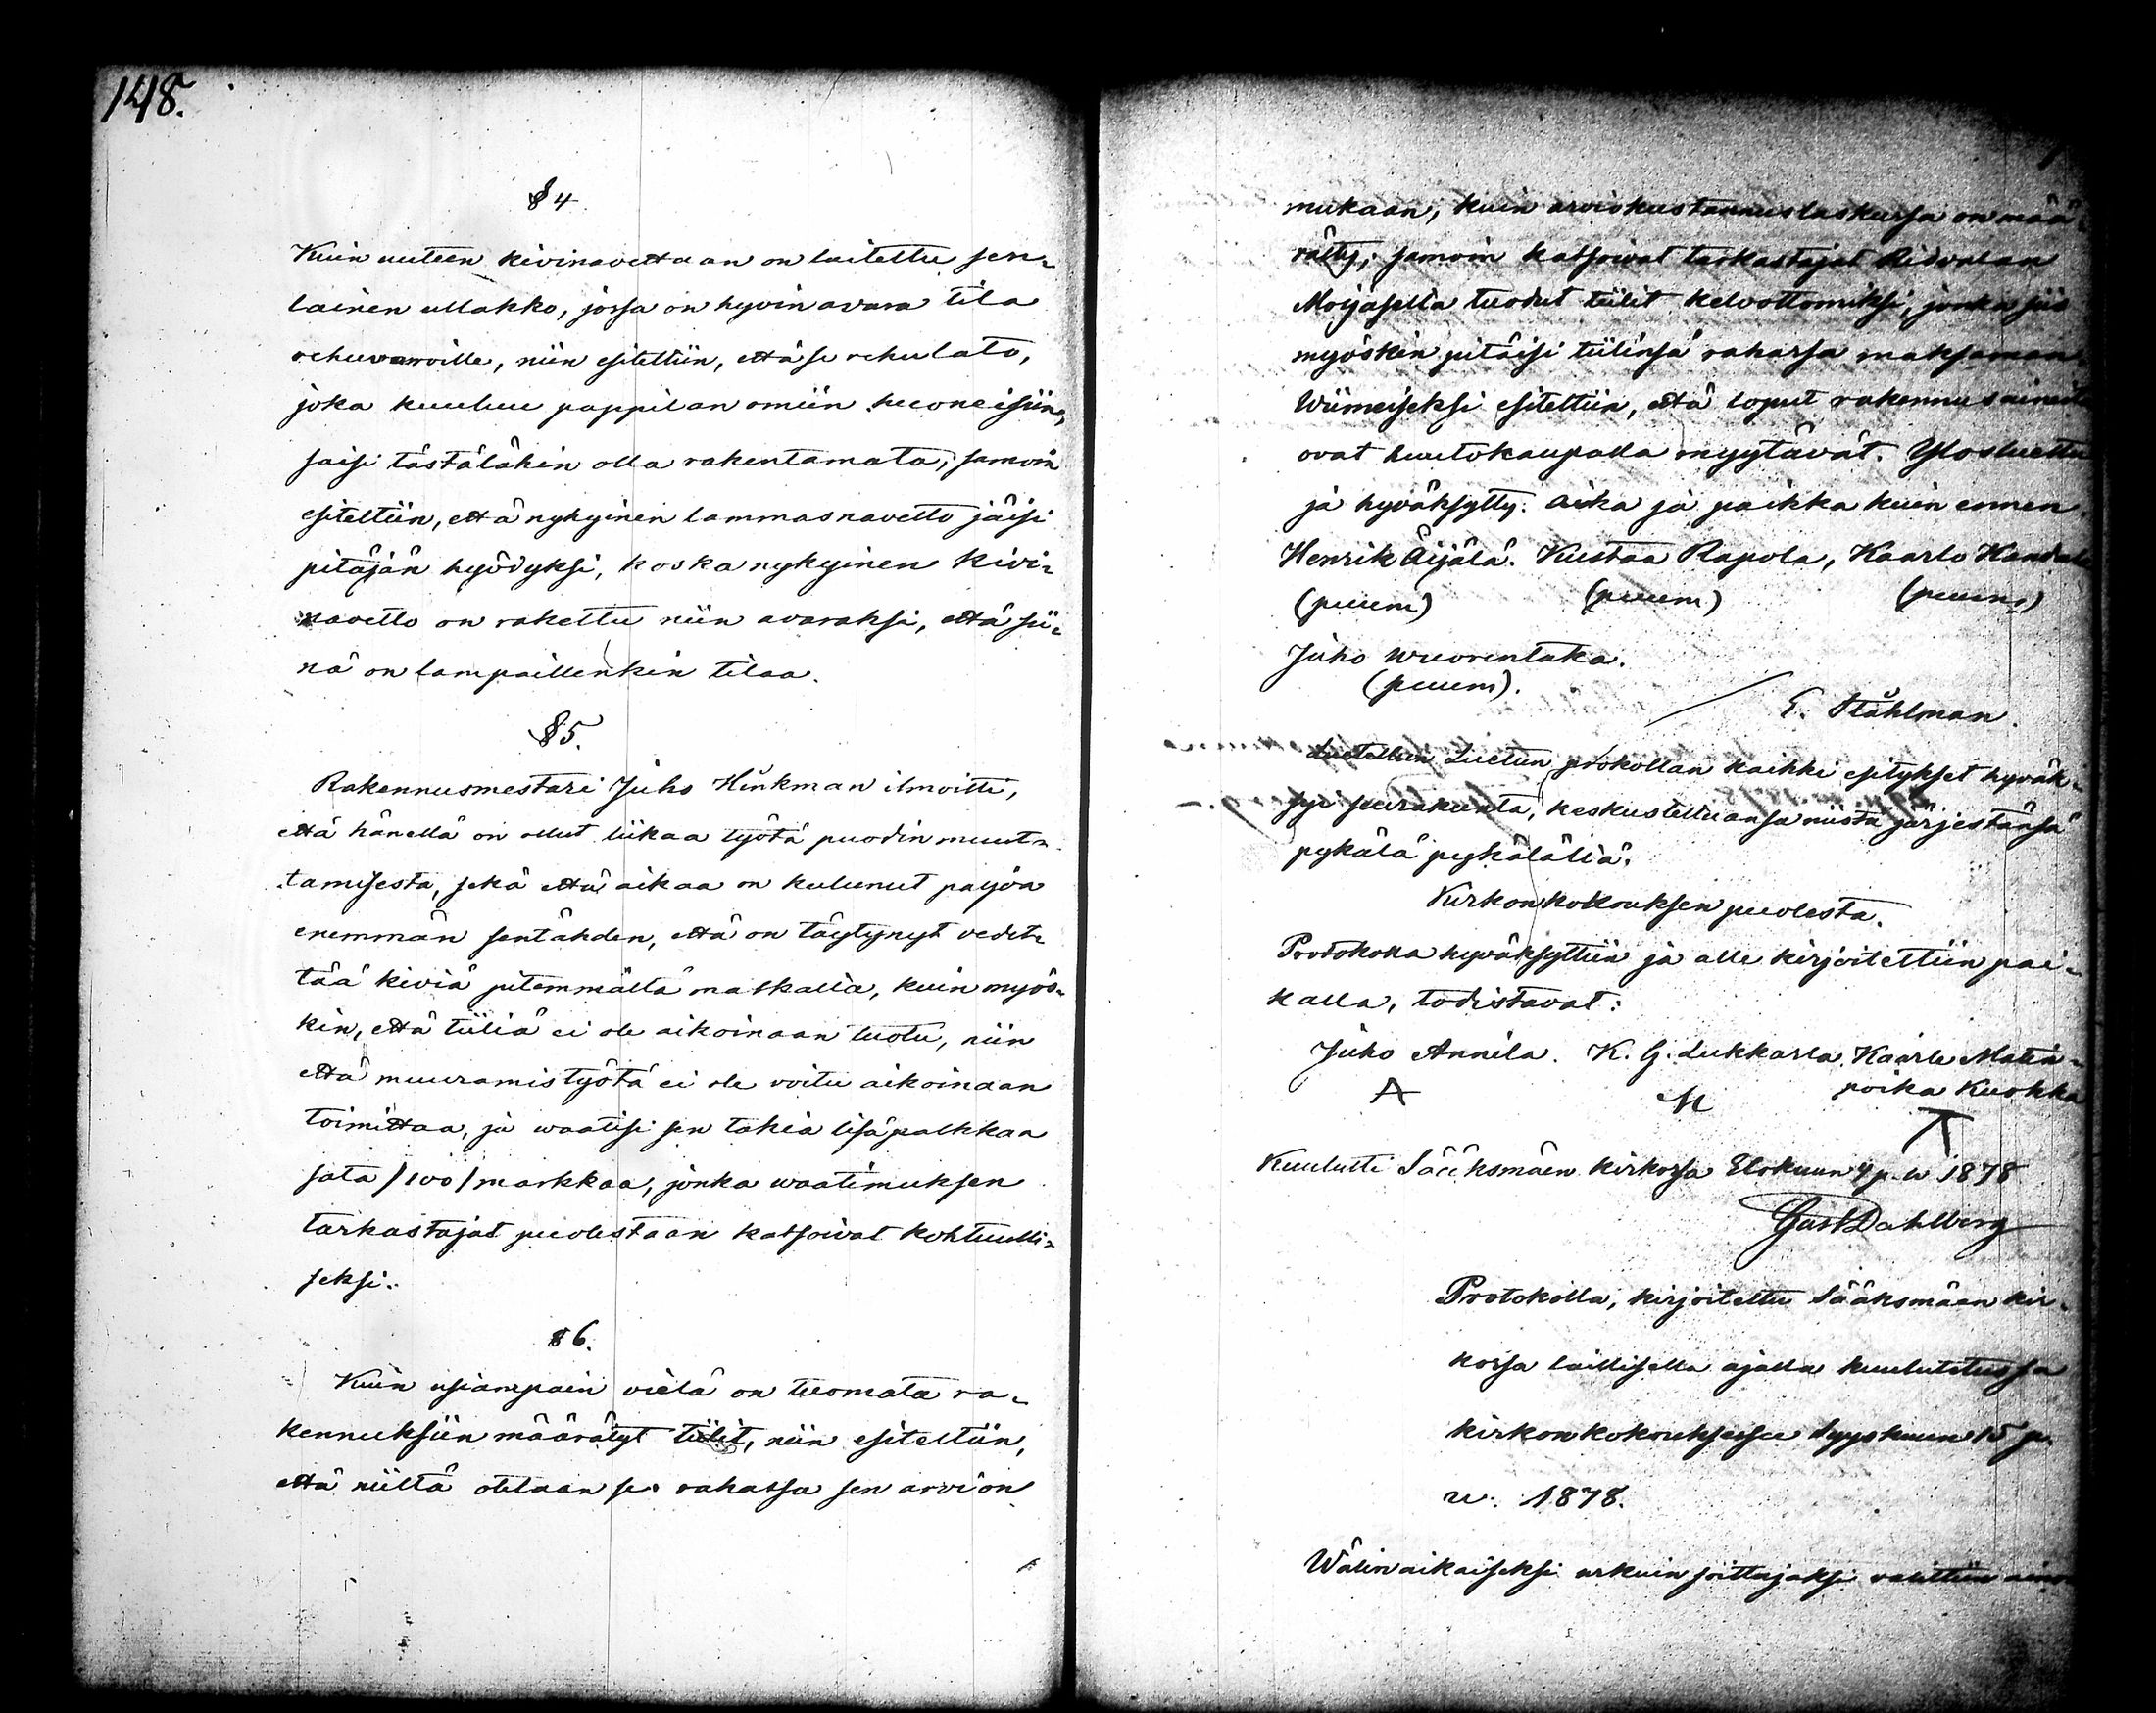 148.
§ 4.
Kuin uuteen kivinavettaan on laitettu sen-
lainen ullakko, jossa on hyvin avara tila
rehuvaroille, niin esitettiin, että se rehulato,
joka kuuluu pappilan omiin huoneisiin,
saisi tästälähin olla rakentamata, samoin
esitettiin, että nykyinen lammasnavetto jäisi
pitäjän hyödyksi, koska nykyinen kivi-
navetto on rakettu niin avaraksi, että sii-
nä on lampaillenkin tilaa.
§ 5.
Rakennusmestari Juho Hinkman ilmoitti,
että hänellä on ollut liikaa työtä puodin muut-
tamisesta, sekä että aikaa on kulunut paljoa
enemmän sentähden, että on täytynyt vedet-
tää kiviä pitemmältä matkalta, kuin myös-
kin, että tiiliä ei ole aikoinaan tuotu, niin
että muuramistyötä ei ole voitu aikoinaan
toimittaa, ja waatisi sen takia lisäpalkkaa
sata /100/ markkaa, jonka waatimuksen
tarkastajat puolestaan katsoivat kohtuulli-
seksi.
§ 6.
Kuin usiampain vielä on tuomata ra-
kennuksiin määrätyt tiilit, niin esitettiin,
että niiltä otetaan se rahassa sen arvion
mukaan, kuin arviokustannuslaskussa on mää-
rätty; samoin katsoivat tarkastajat Ridvalan
Moijasella tuodut tiilit kelvottomiksi, jonka siis
myöskin pitäisi tiilinsä rahassa maksaman
Wiimeiseksi esitettiin, että loput rakennusaineita
ovat huutokaupalla myytävät. Ylösluettu
ja hyväksytty. aika ja paikka kuin ennen
Henrik Äijälä. Kustaa Rapola, Kaarlo
(puum) (puum) (puum)
Juho Wuorentaka.
(puum).
E. Ståhlman.
Luetun prokollan kaikki esitykset hyväk-
syi seurakunta, keskusteltuansa niistä järjestänsä
pykälä pykälältä.
Kirkonkokouksen puolesta.
Protokolla hyväksyttiin ja alle kirjoitettiin pai-
kalla, todistavat:
Juho Annila. K. G. Lukkarla. Kaarle Matin
poika Kuokka
A
Kuulutti Sääksmäen kirkossa Elokuun 4 p. w 1878
Gust Dahlberg
Protokolla, kirjoitettu Sääksmäen kir-
kossa laillisella ajalla kuulutetussa
kirkonkokouksessa Syyskuun 15 p.
w. 1878.
Wälinaikaiseksi urkuin soittajaksi valittiin